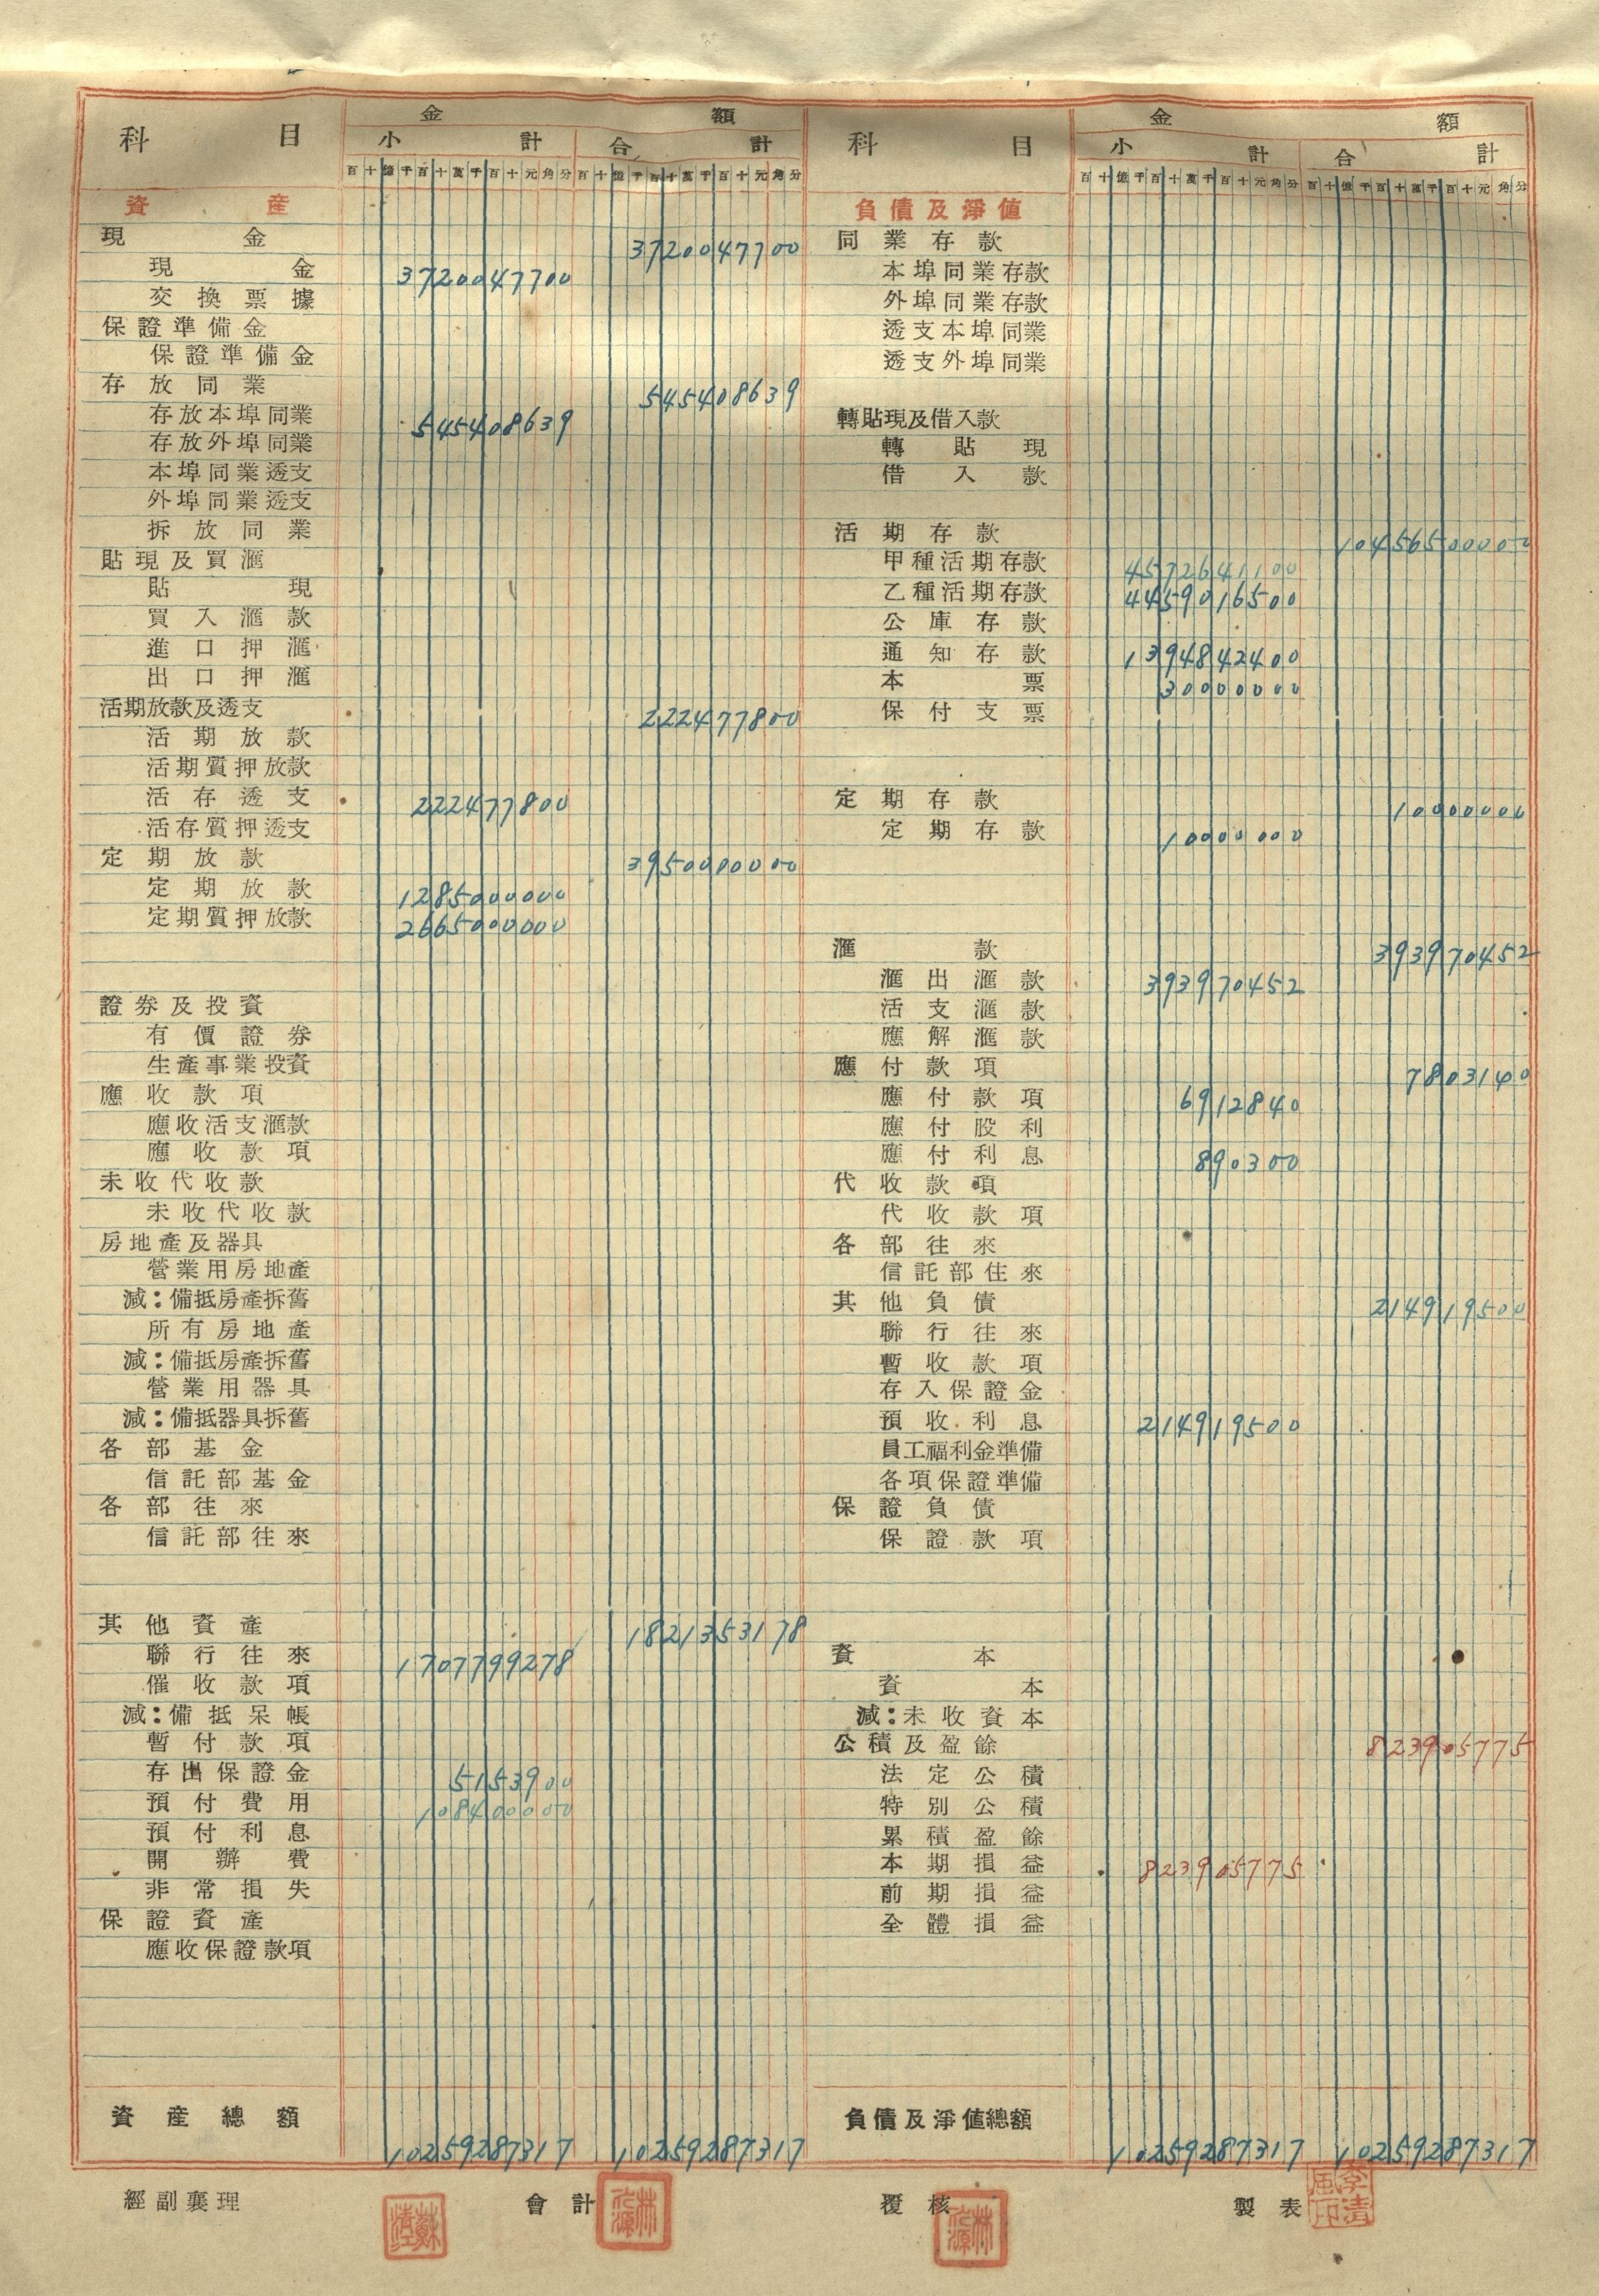 科目 金額
小計 合計
百十億千百十萬千百十元角分 百十億千百十萬千百十元角分
資產
現金 3720047700
現金 3720047700
交換票據
保證準備金
保證準備金
存放同業 545408639
存放本埠同業 545408639
存放外埠同業
本埠同業透支
外埠同業透支
拆放同業
貼現及買滙
貼現
買入滙款
進口押滙
出口押滙
活期放款及透支 222477800
活期放款
活期質押放款
活存透支 222477800
活存質押透支
定期放款 3950000000
定期放款 1285000000
定期質押放款 2665000000
證券及投資
有價證券
生產事業投資
應收款項
應收活支滙款
應收款項
未收代收款
未收代收款
房地產及器具
營業用房地產
減：備抵房產拆舊
所有房地產
減：備抵房產拆舊
營業用器具
減：備抵器具拆舊
各部基金
信託部基金
各部往來
信託部往來
其他資產 1821353178
聯行往來 1707799278
催收款項
減：備抵呆帳
暫付款項
存出保證金 5153900
預付費用 108400000
預付利息
開辦費
非常損失
保證資產
應收保證款項
資產總額 10259287317 10259287317
科目 金額
小計 合計
百十億千百十萬千百十元角分 百十億千百十萬千百十元角分
負債及淨值
同業存款
本埠同業存款
外埠同業存款
透支本埠同業
透支外埠同業
轉貼現及借入款
轉貼現
借入款
活期存款 10456500000
甲種活期存款 4572641100
乙種活期存款 4459016500
公庫存款
通知存款 1394842400
本票 30000000
保付支票
定期存款 10000000
定期存款 10000000
滙款 393970452
滙出滙款 393970452
活支滙款
應解滙款
應付款項 7803140
應付款項 6912840
應付股利
應付利息 890300
代收款項
代收款項
各部往來
信託部往來
其他負債 214919500
聯行往來
暫收款項
存入保證金
預收利息 214919500
員工福利金準備
各項保證準備
保證負債
保證款項
資本
資本
減：未收資本
公積及盈餘 823905775
法定公積
特別公積
累積盈餘
本期損益 823905775
前期損益
全體損益
負債及淨值總額 10259287317 10259287317
經副襄理 會計 覆核 製表
李清風印